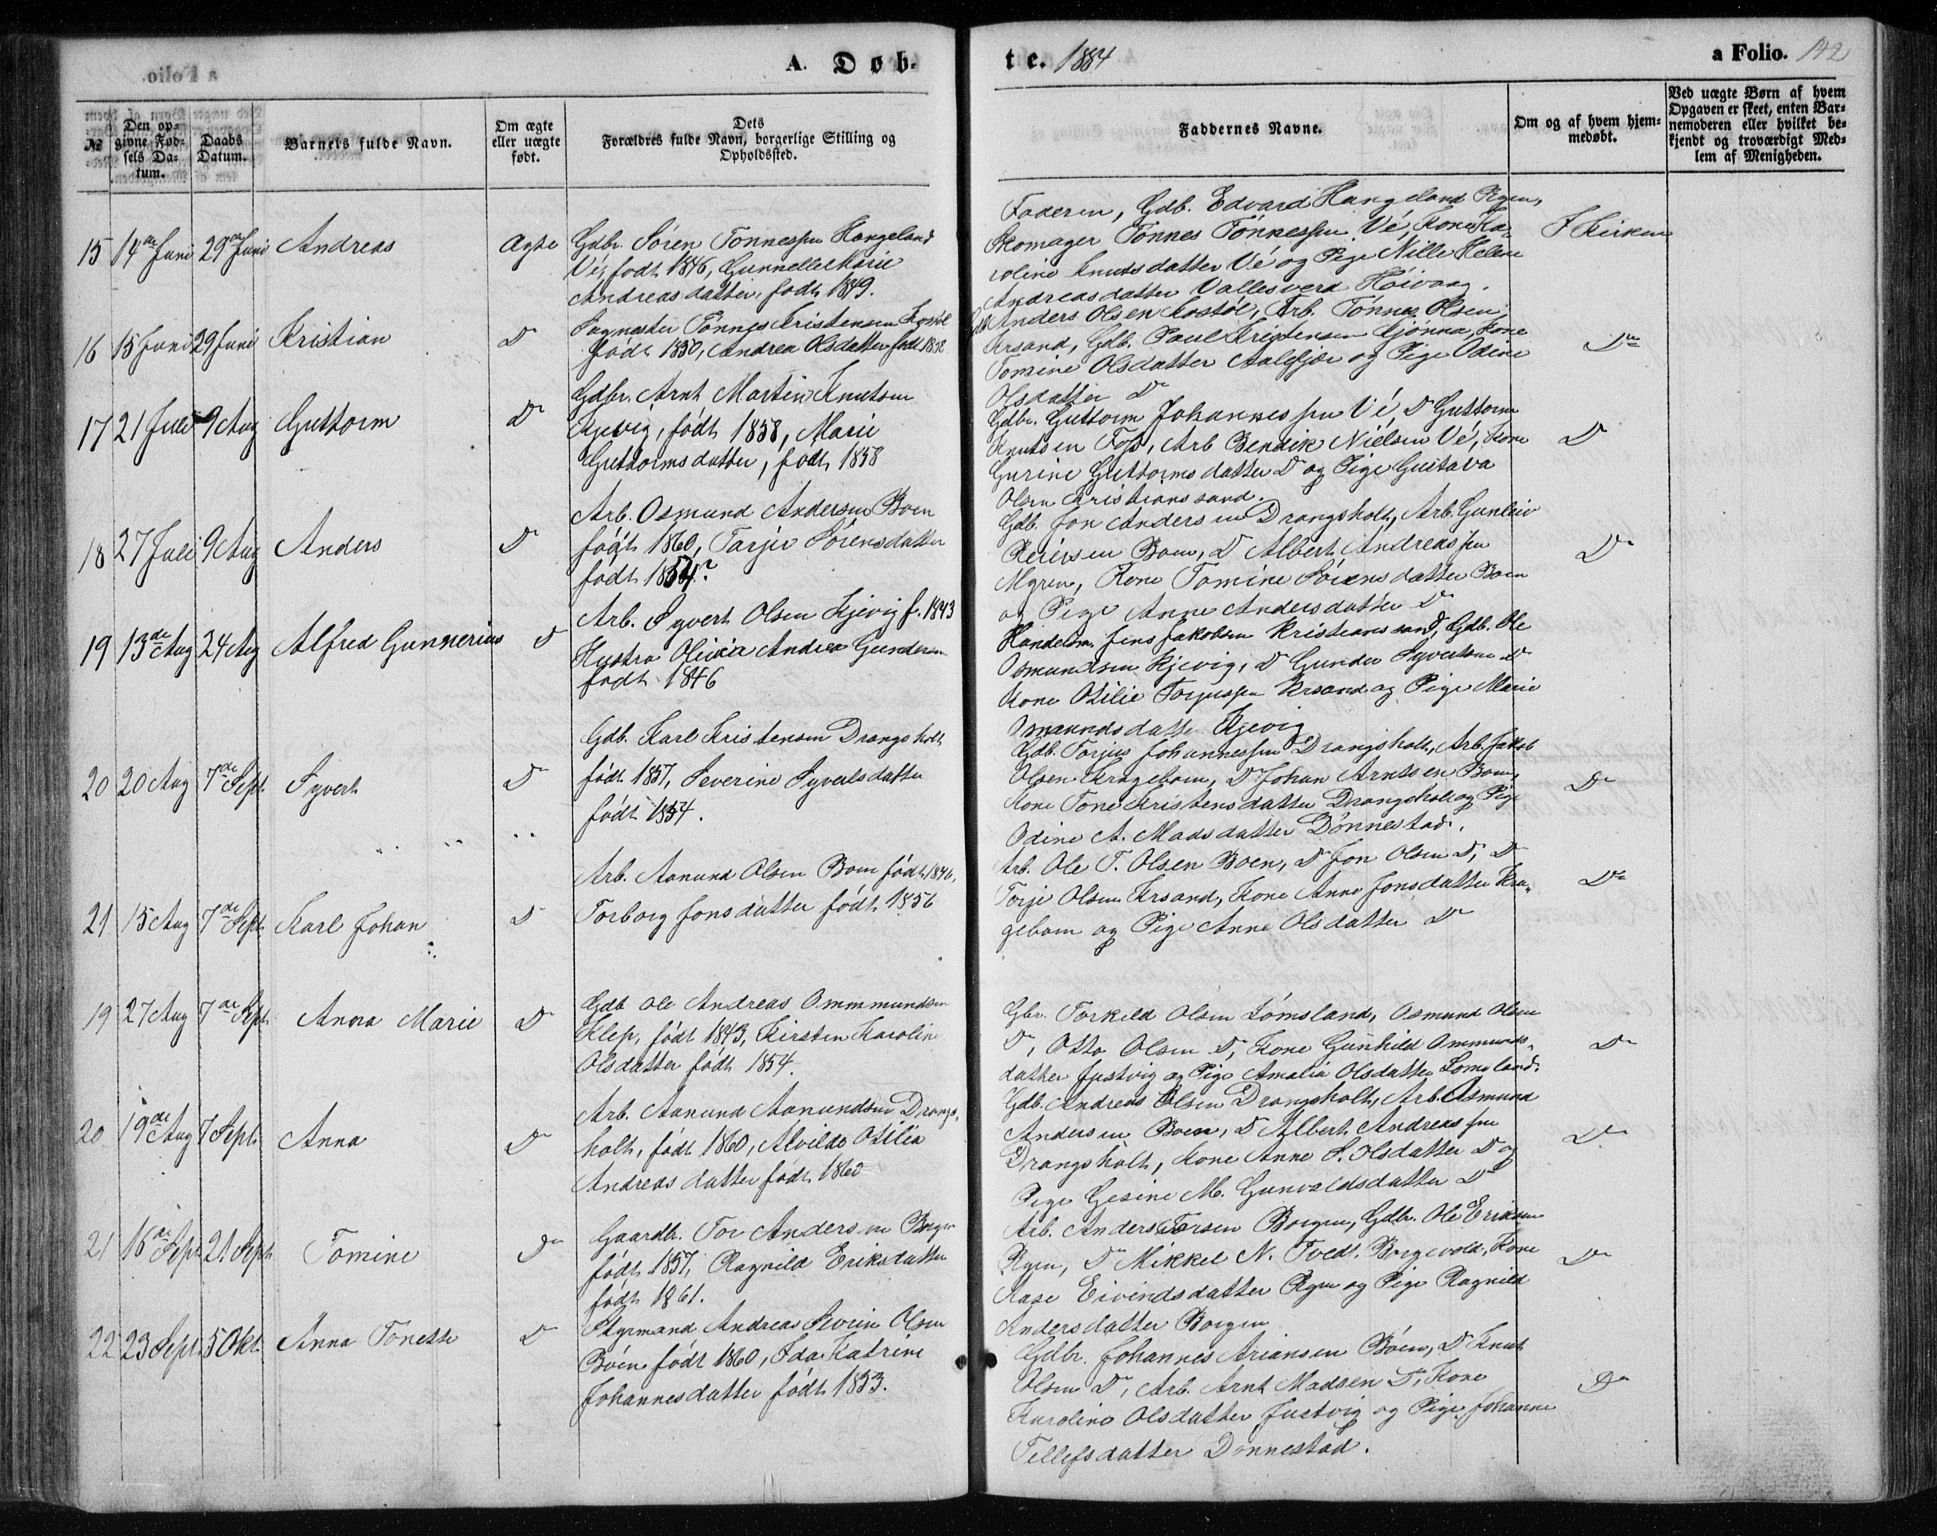 A. Døb-
te. 1884
a Folio. 142
№
Den op-
givne Fød-
sels Da-
tum.
Daabs
Datum.
Barnets fulde Navn.
Om ægte
eller uægte
født.
Dets
Forældres fulde Navn, borgerlige Stilling og
Opholdssted.
Faddernes Navne.
Om og af hvem hjem-
medøbt.
Ved uægte Børn af hvem
Opgaven er skeet, enten Bar-
nemoderen eller hvilket be-
kjendt og troværdigt Med-
lem af Menigheden.
15 14de Juni 29de Juni Andreas Ægte
Gdbr. Sören Tönnessen Hangeland
Vé, född 1846, Gunnelle Marie
Andreasdatter, född 1849.
Faderen, Gdb. Edvard Hangeland
Skomager Tönnes Tönnessen Vé, Kone Ka-
roline Knutsdatter Vé og Pige Nille Helene
Andreasdatter Vallesverd Höivaag.
I Kirken
16 15 Juni 29 Juni Kristian Do
Tönnes Kristensen Kostöl
född 1850, Andrea Olsdatter född 1852
Anders Olsen Kostöl, Arb. Tönnes Olsen
Krsand, Gdb. Paul Kristensen Gjönna, Kone
Tomine Olsdatter Aalefjær og Pige Odine
Olsdatter Do
Do
17 21 Juli 9 Aug Guttorm Do
Gdbr. Arnt Martin Knutsen
Kjevig, född 1858, Marie
Guttormsdatter, född 1858
Gdbr. Guttorm Johannessen Vé, Do Guttorm
Knutsen Foss, Arb Bendik Nielsen Vé, Kone
Gurine Guttormsdatter Do og Pige Gustava
Olsen Kristianssand.
Do
18 27 Juli 9 Aug Anders Do
Arb. Osmund Andersen Boen
född 1860, Tarjer Sörensdatter
född 1854?
Gdb. Jon Andersen Drangsholt, Arb. Gunleiv
Reiersen Boen, Do Albert Andreassen
Mgren, Kone Tomine Sörensdatter Boen
og Pige Anne Andersdatter Do
Do
19 13de Aug 24 Aug Alfred Gunnerius Do
Arb. Syvert Olsen Kjevig f. 1843
Hustru Andrea Gundersen
född 1846
Handelsm Jens Jakobsen Kristianssand, Gdb. Ole
Osmundsen Kjevig, Do Gunder Syvertsen Do
Kone Otilie Torjussen Krsand og Pige Marie
Osmundsdatter Kjevig
20 20 Aug 7de Sept. Syvert Do
Gdb. Karl Kristensen Drangsholt
född 1857, Severine Syvertsdatter
född 1854.
Gdb. Torjus Johannessen Drangsholt, Arb. Jakob
Olsen Krageboen, Do Johan Arntsen Boen,
Kone Tone Kristensdatter Drangsholt og Pige
Odine A. Madsdatter Dönnestad.
Do
21 15 Aug 7de Sept. Karl Johan Do
Arb. Aanund Olsen Boen född 1846,
Torborg Jonsdatter född 1856
Arb. Ole T. Olsen Boen, Do Jon Olsen Do, Do
Torje Olsen Krsand, Kone Anne Jonsdatter Kra-
geboen og Pige Anne Olsdatter Do
Do
19 27 Aug 7de Sept. Anna Marie Do
Gdb Ole Andreas Ommundsen
Klep, född 1843, Kirsten Karolin
Olsdatter född 1854.
Gbr. Torkild Olsen Lömsland, Osmund Olsen
Do, Otto Olsen Do, Kone Gunhild Ommunds-
datter Justvig og Pige Amalia Olsdatter Lömsland.
Do
20 19de Aug 7 Sept. Anna Do
Arb. Aanund Aanundsen Drangs-
holt, född 1860, Alvilde Otilia
Andreasdatter född 1860
Gdb. Andreas Olsen Drangsholt, Arb. Osmund
Andersen Boen, Do Albert Andreassen
Drangsholt, Kone Anne S. Olsdatter Do og
Pige Gesine M. Gunvaldsdatter Do
Do
21 16de Sept. 21 Sept. Tomine Do
Gaardbr. Tor Andersen Borgen
född 1857, Ragnild Eriksdatter
född 1861.
Arb. Anders Torsen Borgen, Gdbr. Ole Eriksen
Rgen, Do Mikkel N. Tvedt. Borgevold, Kone
Aase Eivindsdatter Rgen og Pige Ragnild
Andersdatter Borgen
Do
22 23 Sept. 5 Okt. Anna Tonette Do
Styrmand Andreas Severin Olsen
Böen född 1860, Ida Katrine
Johannesdatter född 1853.
Gdbr. Johannes Ariansen Böen, Do Knut
Olsen Do, Arb. Arnt Madsen Do, Kone
Karoline Olsdatter Justvig og Pige Johanne
Tellefsdatter Dönnestad.
Do